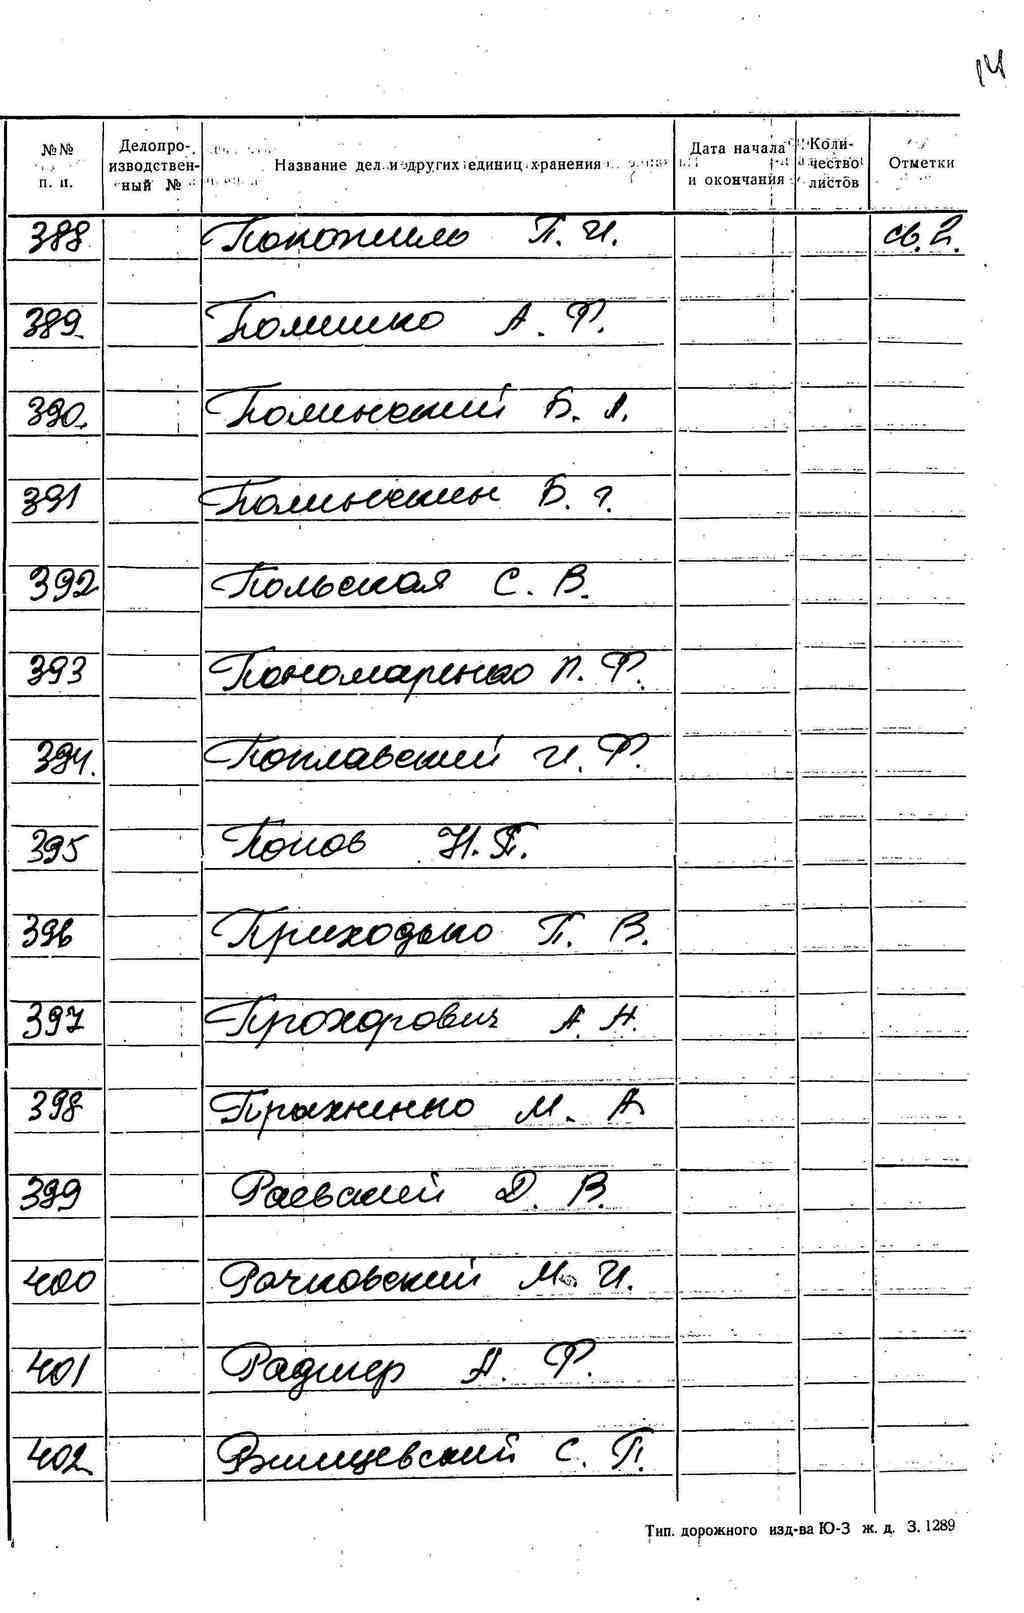 14
№№ п. п. Делопро-изводствен-ный № Название дел и других единиц хранения Дата начала и окончания Коли-чество листов Отметки
388 Покотило П. И. св. 2.
389. Полишко А. Ф.
390. Полинский Б. А.
391 Б. Г.
392 Польская С. В.
393 Пономаренко П. Ф.
394. Поплавский И. Ф.
395 Попов Н. П.
396 Приходько П. В.
397 Прохорович А. Н.
398 Пряхненко М. А
399 Раевский Д. В.
400 Рачковский М. И.
401 А. Ф.
402. Ржищевский С. П.
Тип. дорожного изд-ва Ю-З ж. д. З. 1289